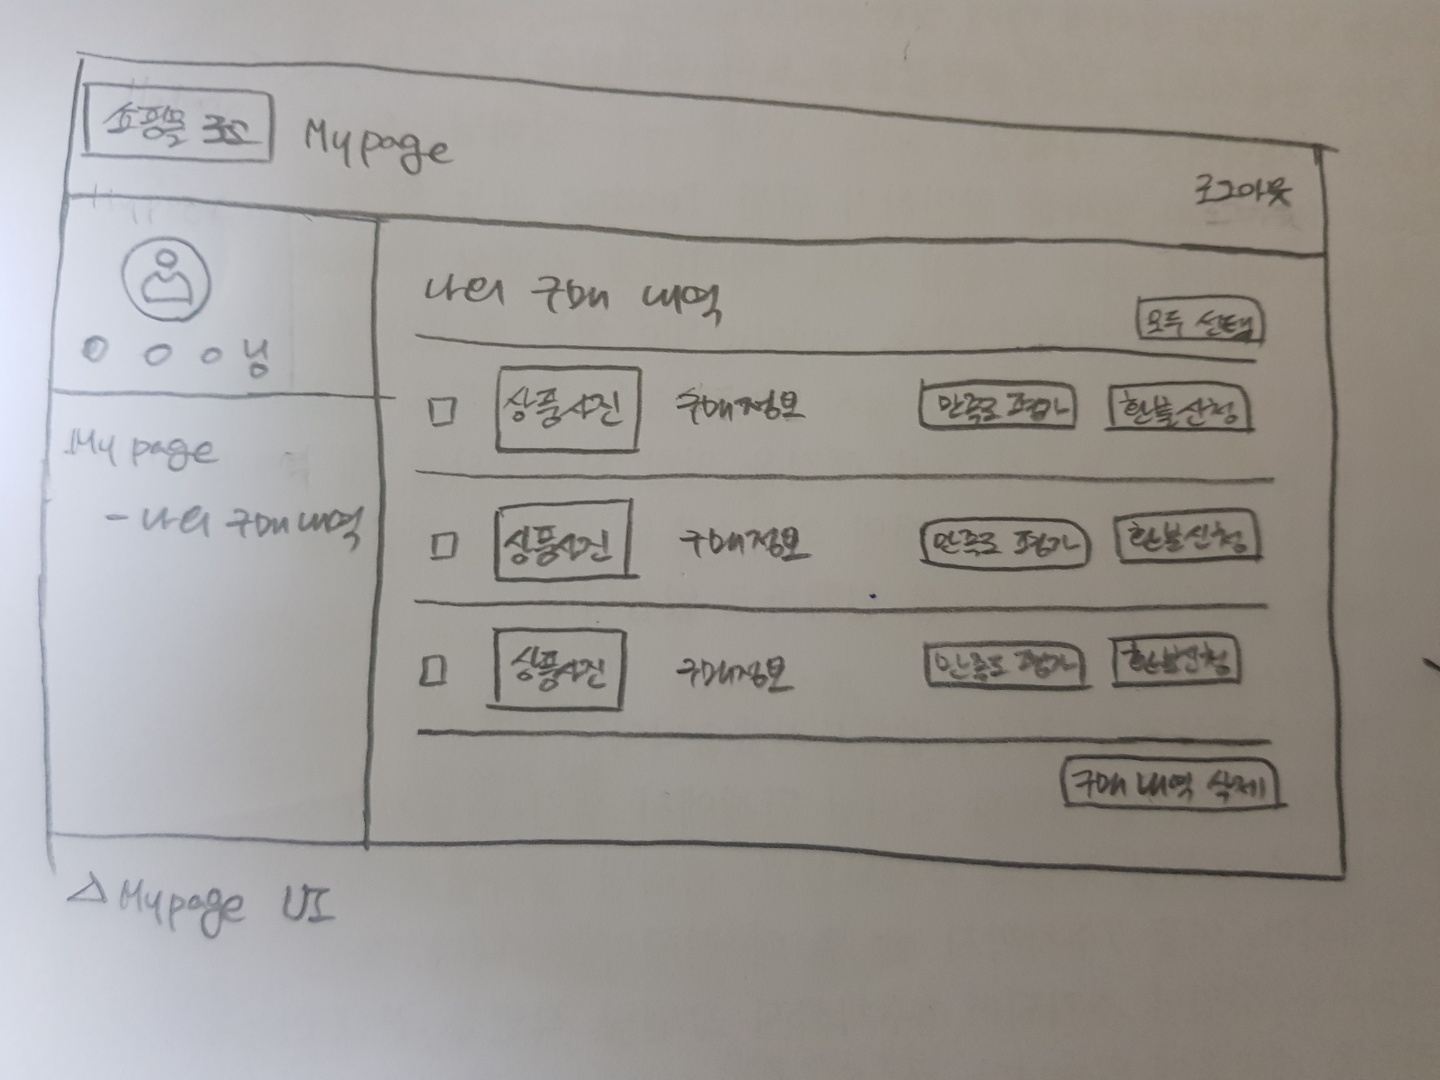 쇼핑몰 로고 My page
로그아웃
ㅇ ㅇ ㅇ 님
My page
- 나의 구매 내역
나의 구매 내역
모두 선택
상품사진 구매정보 만족도 평가 환불신청
상품사진 구매정보 만족도 평가 환불신청
상품사진 구매정보 만족도 평가 환불신청
구매 내역 삭제
△ My page UI